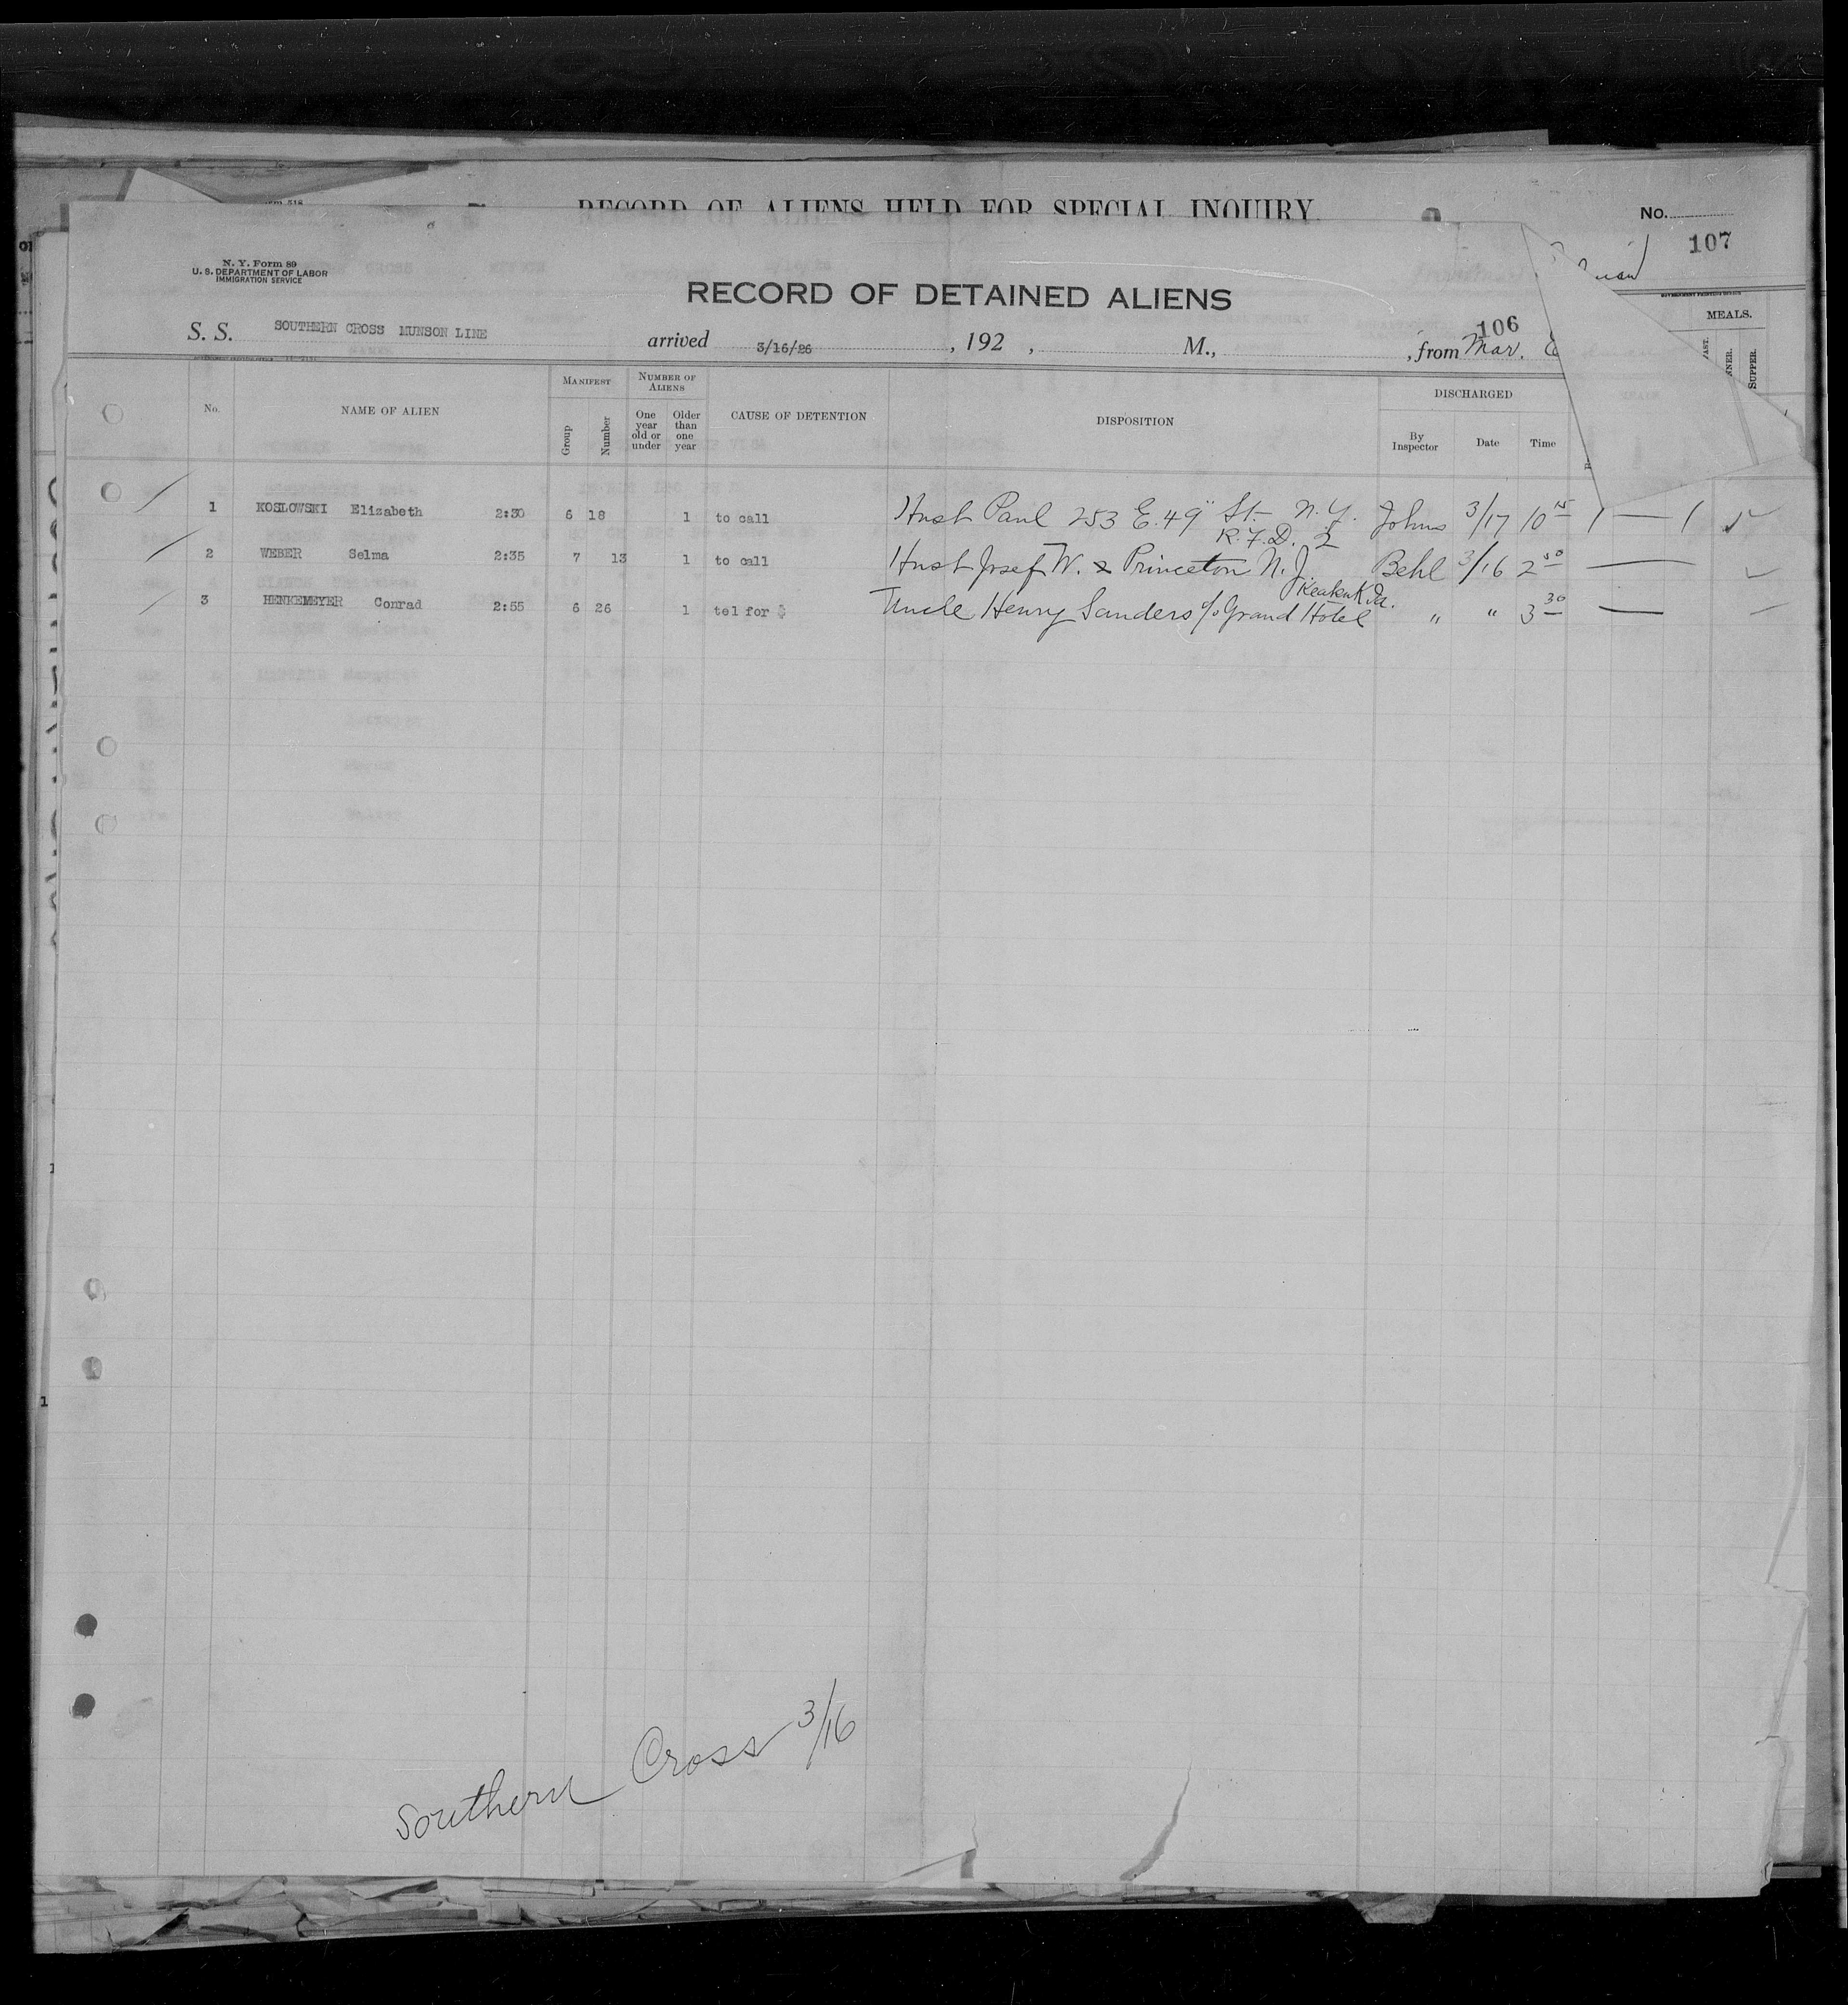 RECORD OF ALIENS HELD FOR SPECIAL INQUIRY
No.
107
N. Y. Form 89
U. S. DEPARTMENT OF LABOR
IMMIGRATION SERVICE
RECORD OF DETAINED ALIENS
106
S. S. SOUTHERN CROSS MUNSON LINE arrived 3/16/26, 192 , M., , from Mar.
MEALS.
NNER.
SUPPER.
No. NAME OF ALIEN MANIFEST Group Number NUMBER OF ALIENS One year old or under Older than one year CAUSE OF DETENTION DISPOSITION DISCHARGED By Inspector Date Time
1 KOSLOWSKI Elizabeth 2:30 6 18 1 to call Husb Paul 253 E. 49" St. N.Y. Johns 3/17 10 15 1 — 1
R.F.D. 2
2 WEBER Selma 2:35 7 13 1 to call Husb Josef W. Princeton N.J. Behl 3/16 2 50 —
Keokuk Ia.
3 HENKEMEYER Conrad 2:55 6 26 1 tel for $ Uncle Henry Sanders c/o Grand Hotel " " 3 30 —
Southern Cross 3/16